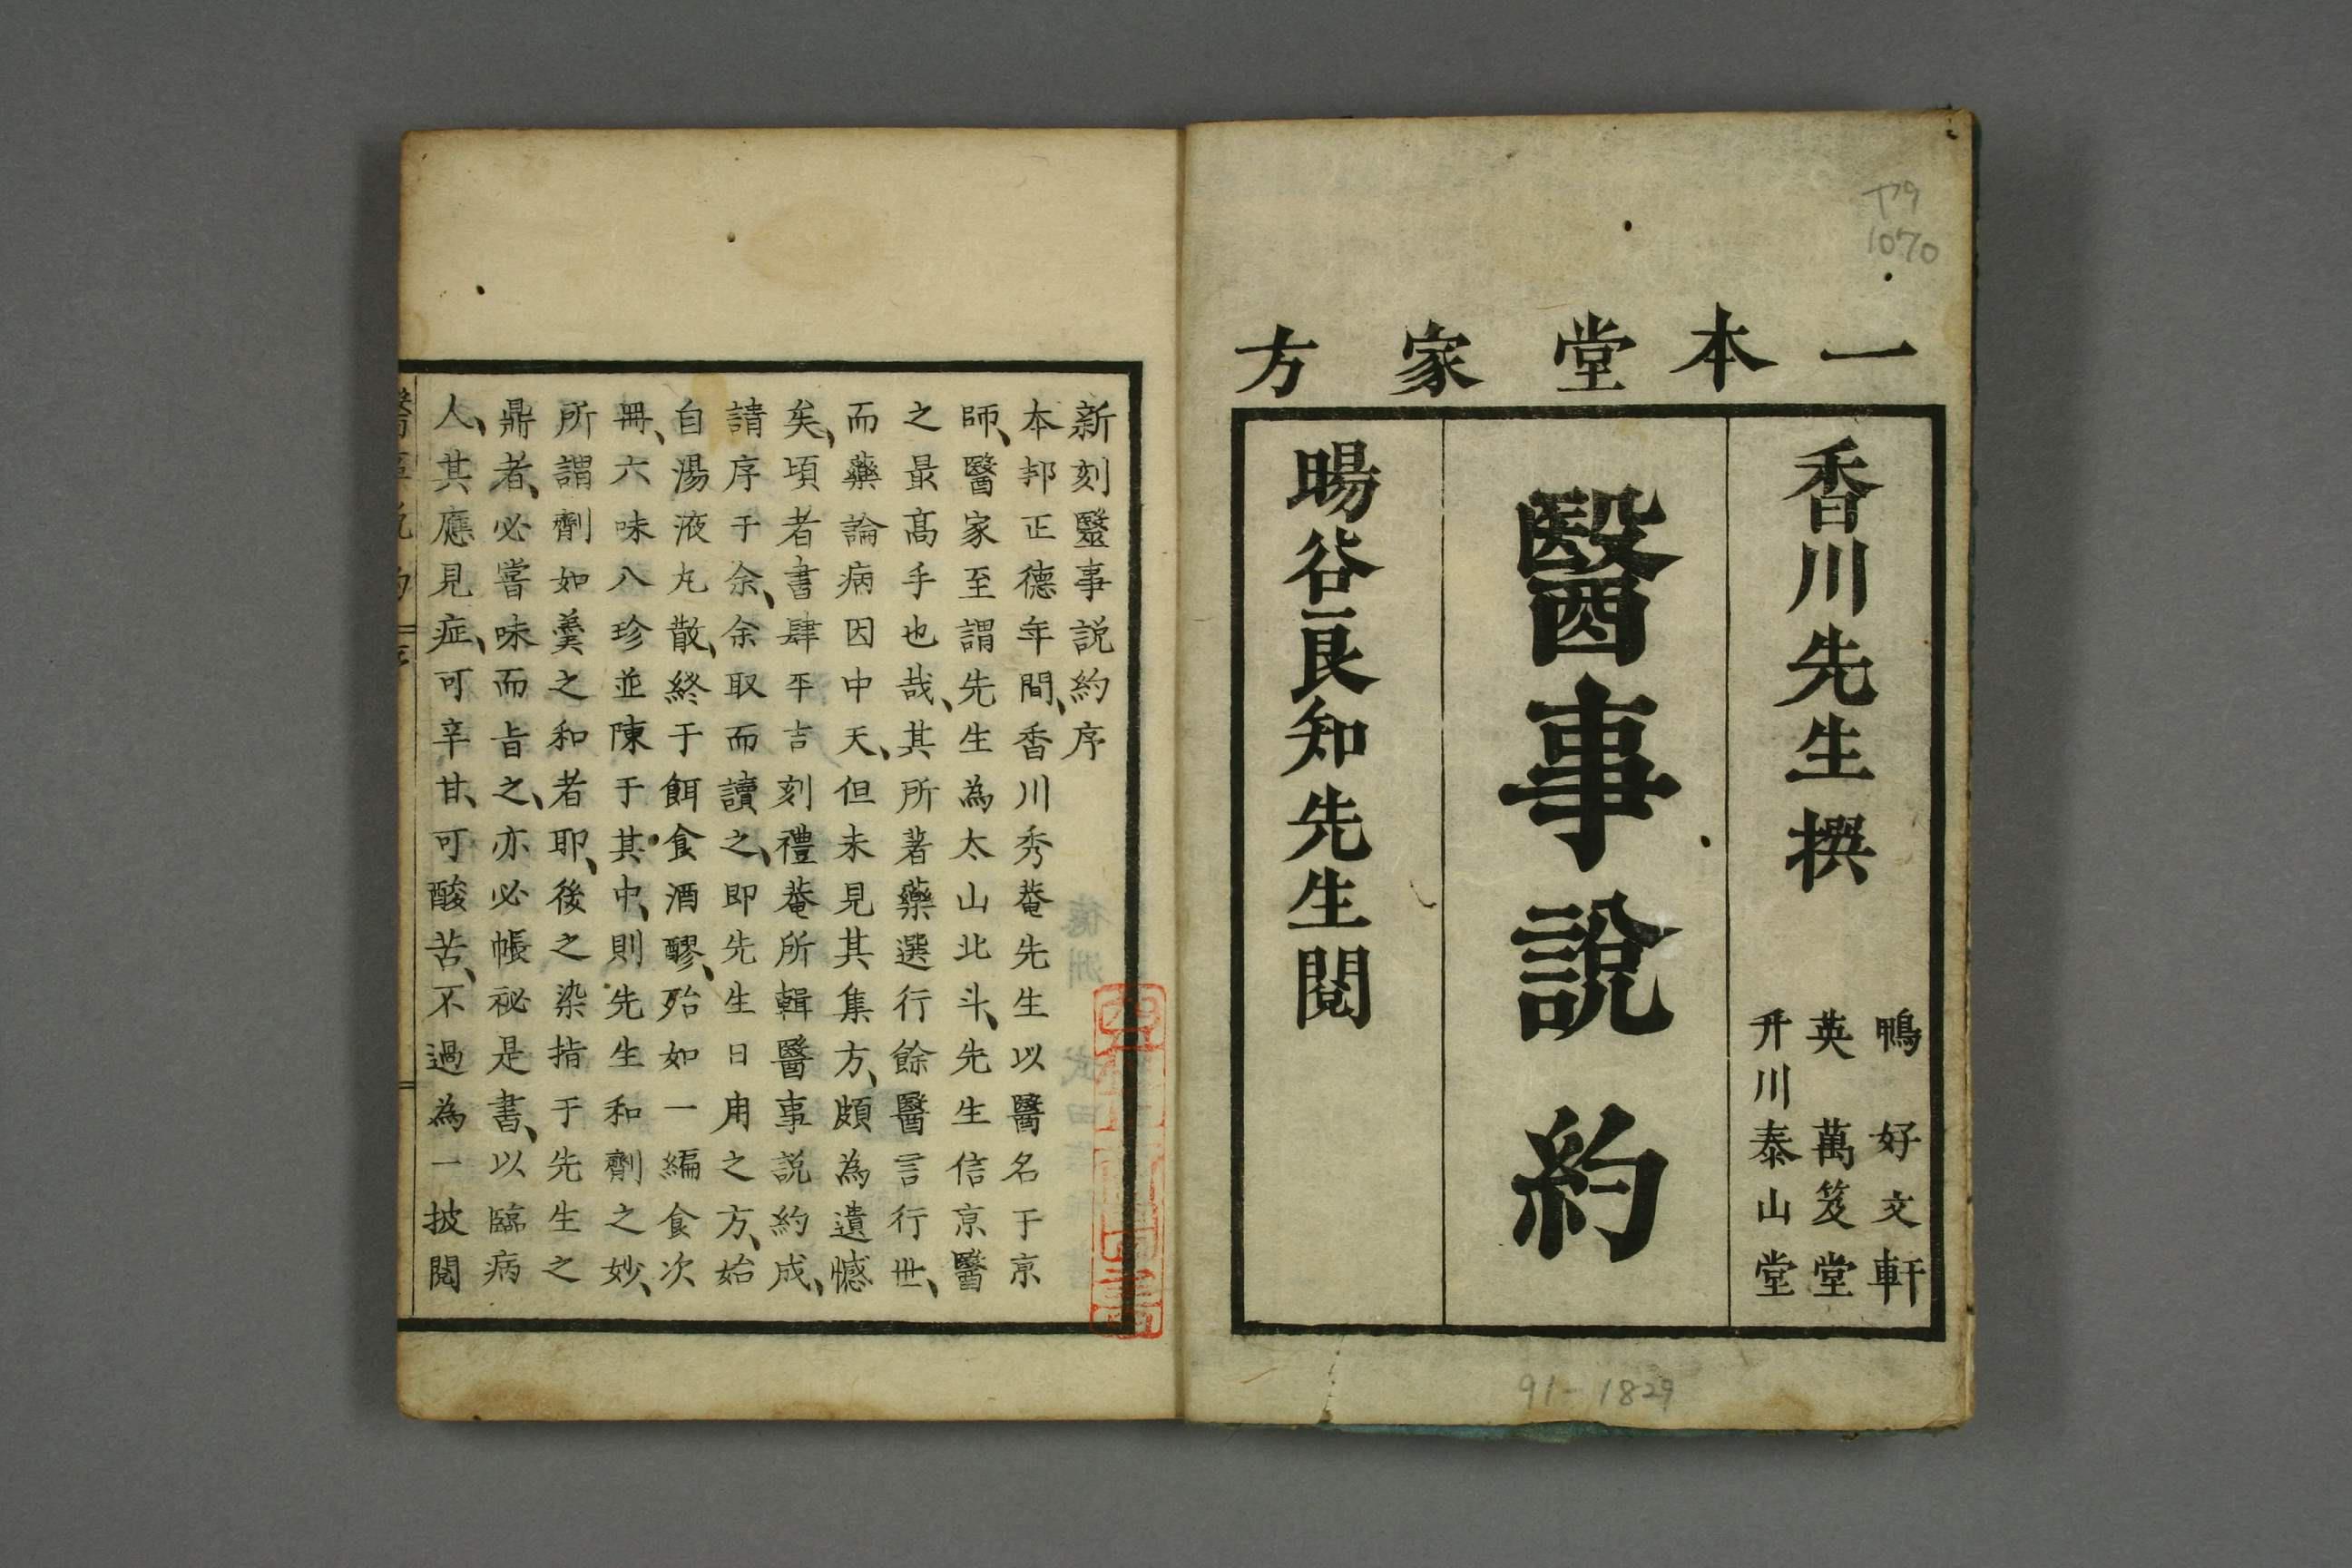 一本堂家方
香川先生撰
鴨好文軒
英萬笈堂
升川泰山堂
醫事說約
暘谷良知先生閱
1070
91-1829
新刻毉事説約序
本邦正德年間、香川秀菴先生以醫名于京
師、醫家至謂先生為太山北斗、先生信京醫
之最高手也哉、其所著藥選行餘醫言行世、
而藥論病因中天、但未見其集方、頗為遺憾
矣、頃者書肆平吉刻禮菴所輯醫事説約成、
請序于余、余取而讀之、即先生日用之方、始
自湯液丸散、終于餌食酒醪、殆如一編食次
冊、六味八珍並陳于其中、則先生和劑之妙、
所謂劑如羹之和者耶、後之染指于先生之
鼎者、必嘗味而旨之、亦必帳祕是書、以臨病
人、其應見症、可辛甘、可酸苦、不過為一披閱